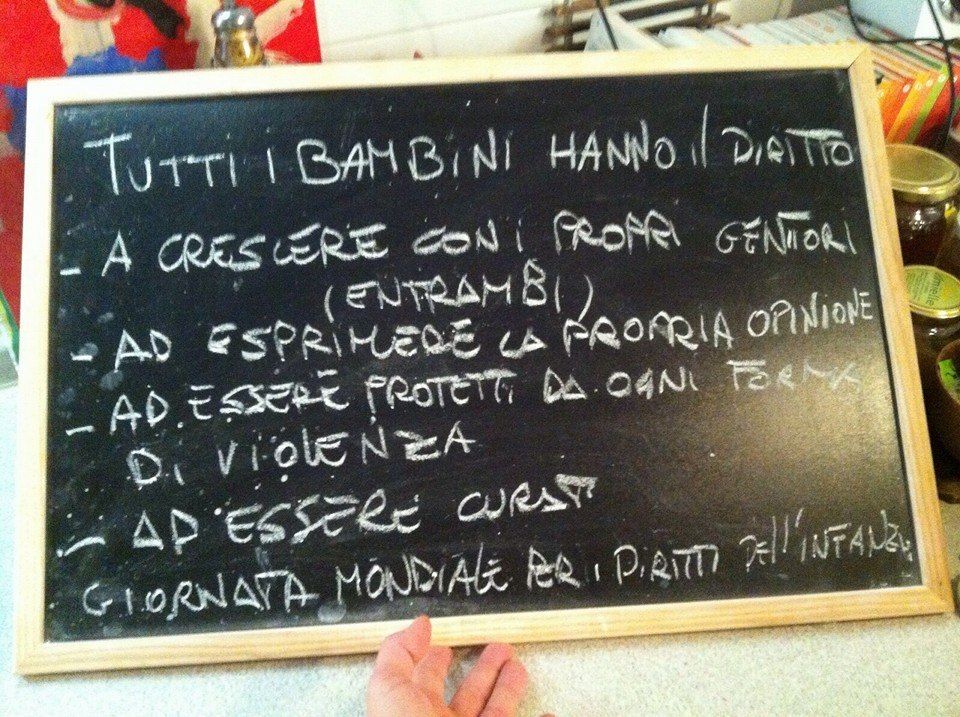 TUTTI I BAMBINI HANNO il DIRITTO
- A CRESCERE CON I PROPRI GENITORI
(ENTRAMBI)
- AD ESPRIMERE LA PROPRIA OPINIONE
- AD ESSERE PROTETTI DA OGNI FORMA
DI VIOLENZA
- AD ESSERE CURATI
GIORNATA MONDIALE PER I DIRITTI DELL'INFANZIA